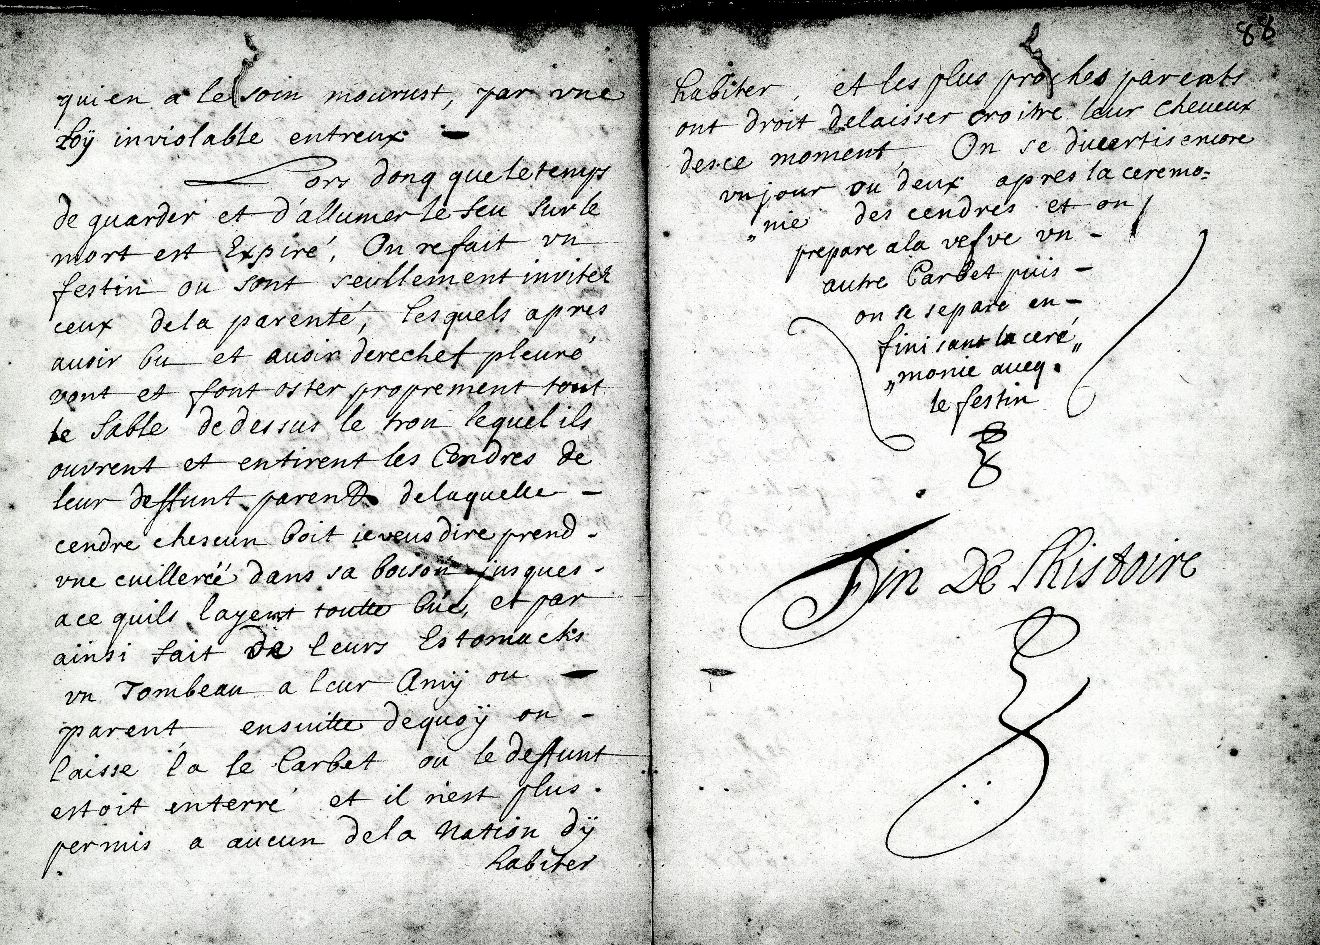 qui en a le soin mourust, par vne
Loÿ inviolable entreux –
Lors donq que le temps
de guarder et d'allumer le feu sur le
mort est Expiré, On refait vn
festin ou sont seullement invitez
ceux de la parenté, lesquels apres
auoir bu et auoir derechef pleuré
vont et font oster proprement tout
le Sable de dessus le trou lequel ils
ouvrent et entirent les Cendres de
leur deffunt parent delaquelle –
cendre chescun boit ie veus dire prend -
vne cuillereé dans sa boison jusques -
a ce quils layent toutte büe, et par
ainsi fait de leurs Estomacks
vn Tombeau a leur Amÿ ou –
parent ensuitte dequoÿ on -
laisse la le Carbet ou le deffunt
estoit enterré et il n'est plus .
permis a aucun dela Nation dÿ
habiter
88
habiter, et les plus proches parents
ont droit delaisser croistre leur cheueux
desce moment, On se diuertis encore
vn jour ou deux apres la ceremo=
„nie des cendres et on
prepare a la vefve vn -
autre Carbet puis -
on se separe en -
finisant la ceré
„monie aueq.
le festin
Fin De Lhistoire